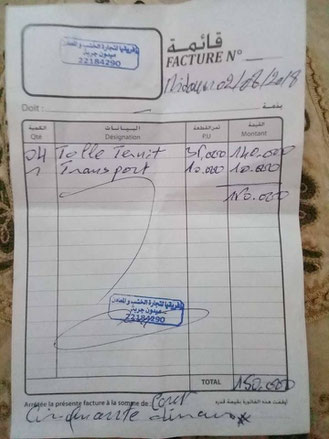 إفريقيا لتجارة الخشب و المعدن
ميدون جربة
22184290
قائمة
FACTURE N°
Midoun 02/06/2018
Doit :
بذمة :
الكمية البيــانــات ثمن القطعة القيمة
Qté Désignation P.U Montant
04 Tolle 35,000 140.000
1 Transport 10.000 10.000
150.000
إفريقيا لتجارة الخشب و المعدن
ميدون جربة
22184290
TOTAL 150.000
Arrêtée la présente facture à la somme de : Cent
أوقفت هذه الفاتورة بقيمة قدرها
Cinquante dinars